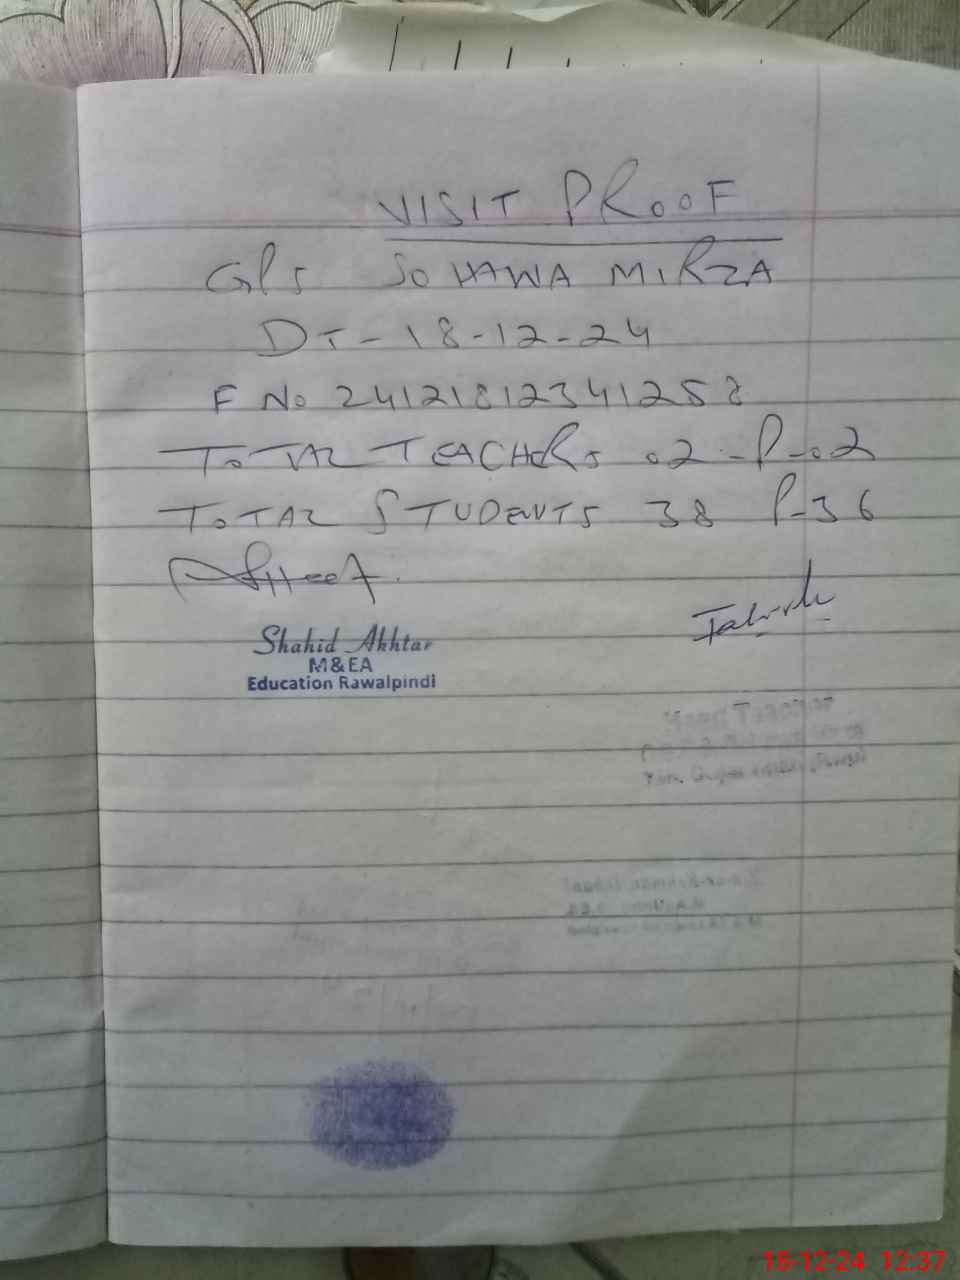 VISIT PROOF
GPS SOHAWA MIRZA
DT-18-12-24
F No 24121812341258
TOTAL TEACHERS 02-P-02
TOTAL STUDENTS 38 P-36
Shahid Akhtar
M&EA
Education Rawalpindi
Head Teacher
18-12-24 12:37